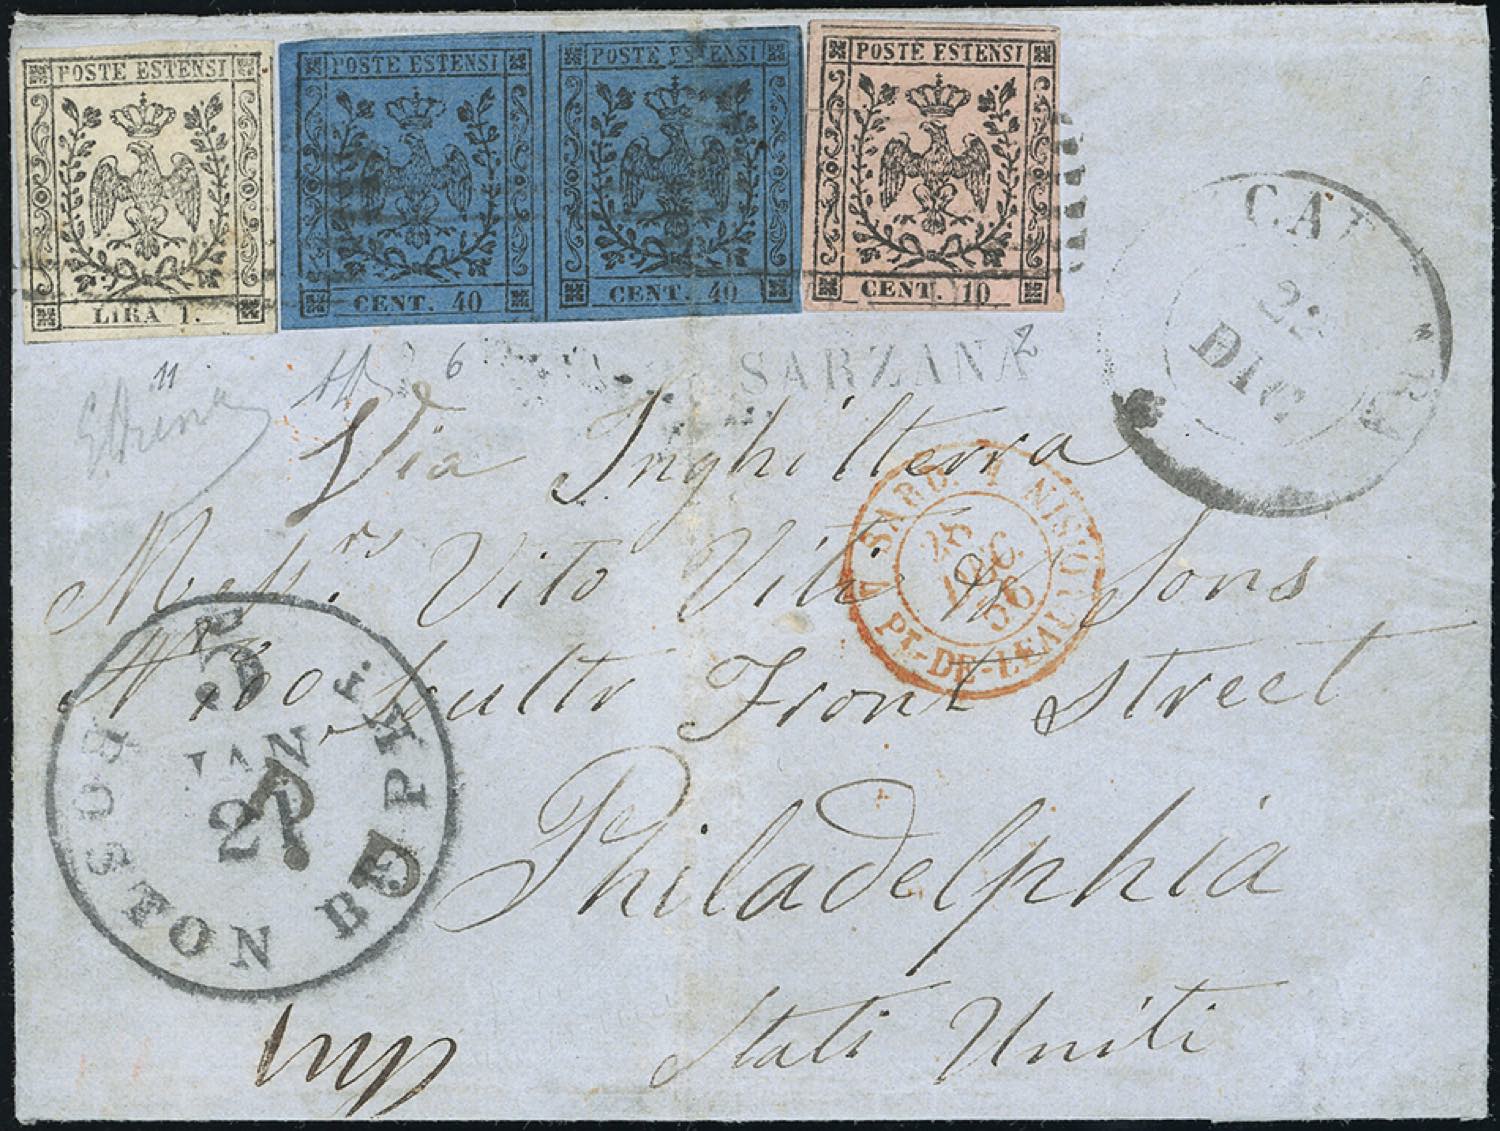 POSTE ESTENSI
LIRA 1.
POSTE ESTENSI
CENT. 40
POSTE ESTENSI
CENT. 40
POSTE ESTENSI
CENT. 10
22
DIC
11
6
2
SARZANA
Via Inghilterra
Messrs Vito Viti & Sons
South Front Street
Philadelphia
Stati Uniti
SARD. PT-DE-BEAUVOISIN
28
DEC.
56
BOSTON BR. PKT.
JAN
21
PD